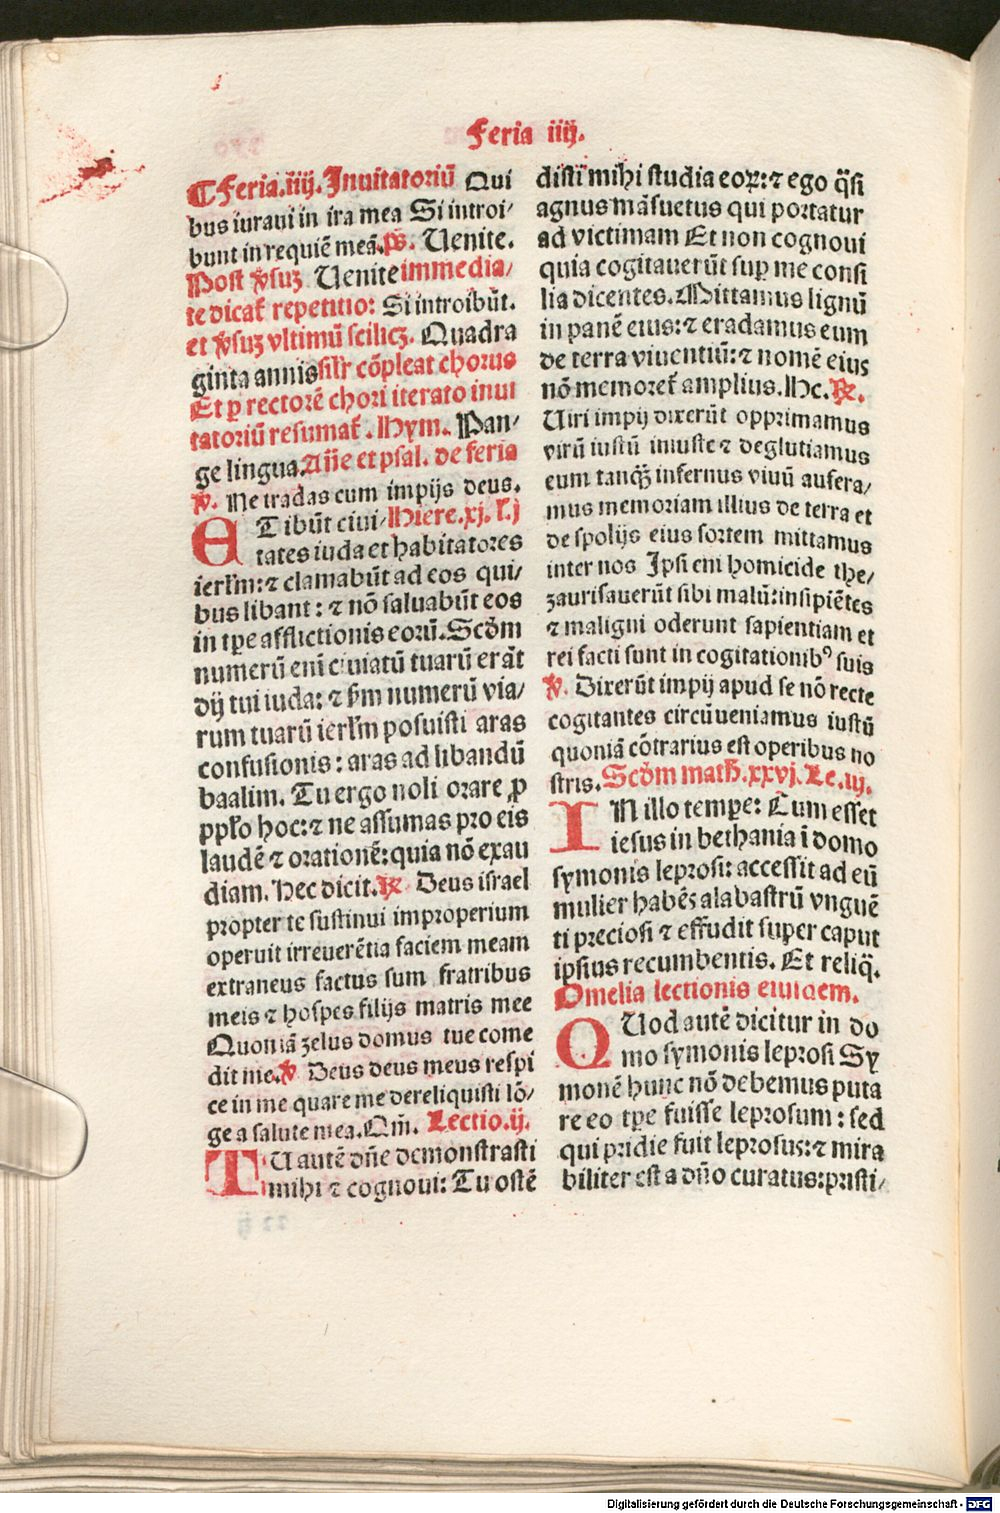 Feria iiij.
¶ Feria.iiij. Inuitatoriū Qui
bus iuraui in ira mea Si introi/
bunt in requiē meā. p̄s. Uenite.
Post v̄suʒ Uenite immedia/
te dicat̄ repetitio: Si introibūt.
et v̄suʒ vltimū scilicʒ. Quadra
ginta annis silr̄ cōpleat chorus
Et ꝑ rectorē chori iterato inui
tatoriū resumat̄. Hym. Pan/
ge lingua. Añe et psal. de feria
℣. Ne tradas cum impijs deus.
ETibūt ciui/ Hiere.xj. L.j
tates iuda et habitatores
ierlm̄: ⁊ clamabūt ad eos qui/
bus libant: ⁊ nō saluabūt eos
in tꝑe afflictionis eorū. Scd̄m
numerū enī ciuiatū tuarū erāt
dij tui iuda: ⁊ ẜm numerū via/
rum tuarū ierlm̄ posuisti aras
confusionis: aras ad libandū
baalim. Tu ergo noli orare ꝓ
pplo hoc: ⁊ ne assumas pro eis
laudē ⁊ orationē: quia nō exau
diam. Hec dicit. ℟. Deus israel
propter te sustinui improperium
operuit irreuerētia faciem meam
extraneus factus sum fratribus
meis ⁊ hospes filijs matris mee
Quoniā zelus domus tue come
dit me. ℣. Deus deus meus respi
ce in me quare me dereliquisti lō/
ge a salute mea. Qm̄. Lectio.ij.
TU autē dñe demonstrasti
mihi ⁊ cognoui: Tu ostē
disti mihi studia eoꝝ: ⁊ ego q̄si
agnus māsuetus qui portatur
ad victimam Et non cognoui
quia cogitauerūt suꝑ me consi
lia dicentes. Mittamus lignū
in panē eius: ⁊ eradamus eum
de terra viuentiū: ⁊ nomē eius
nō memoret̄ amplius. Hc. ℟.
Uiri impij dixerūt opprimamus
virū iustū iniuste ⁊ deglutiamus
eum tanqʒ infernus viuū aufera/
mus memoriam illius de terra et
de spolijs eius sortem mittamus
inter nos Ipsi eni homicide the/
zaurisauerūt sibi malū: insipiētes
⁊ maligni oderunt sapientiam et
rei facti sunt in cogitationibꝰ suis
℣. Dixerūt impij apud se nō recte
cogitantes circūueniamus iustū
quoniā cōtrarius est operibus no
stris. Scd̄m math̄.xxvj. Le.iij.
IN illo tempe: Cum esset
iesus in bethania ī domo
symonis leprosi: accessit ad eū
mulier habēs alabastrū vnguē
ti preciosi ⁊ effudit super caput
ipsius recumbentis. Et reliq̄.
Omelia lectionis eiusdem.
QUod autē dicitur in do
mo symonis leprosi Sy
monē hunc nō debemus puta
re eo tꝑe fuisse leprosum: sed
qui pridie fuit leprosus: ⁊ mira
biliter est a dño curatus: pristi/
Digitalisierung gefördert durch die Deutsche Forschungsgemeinschaft - DFG